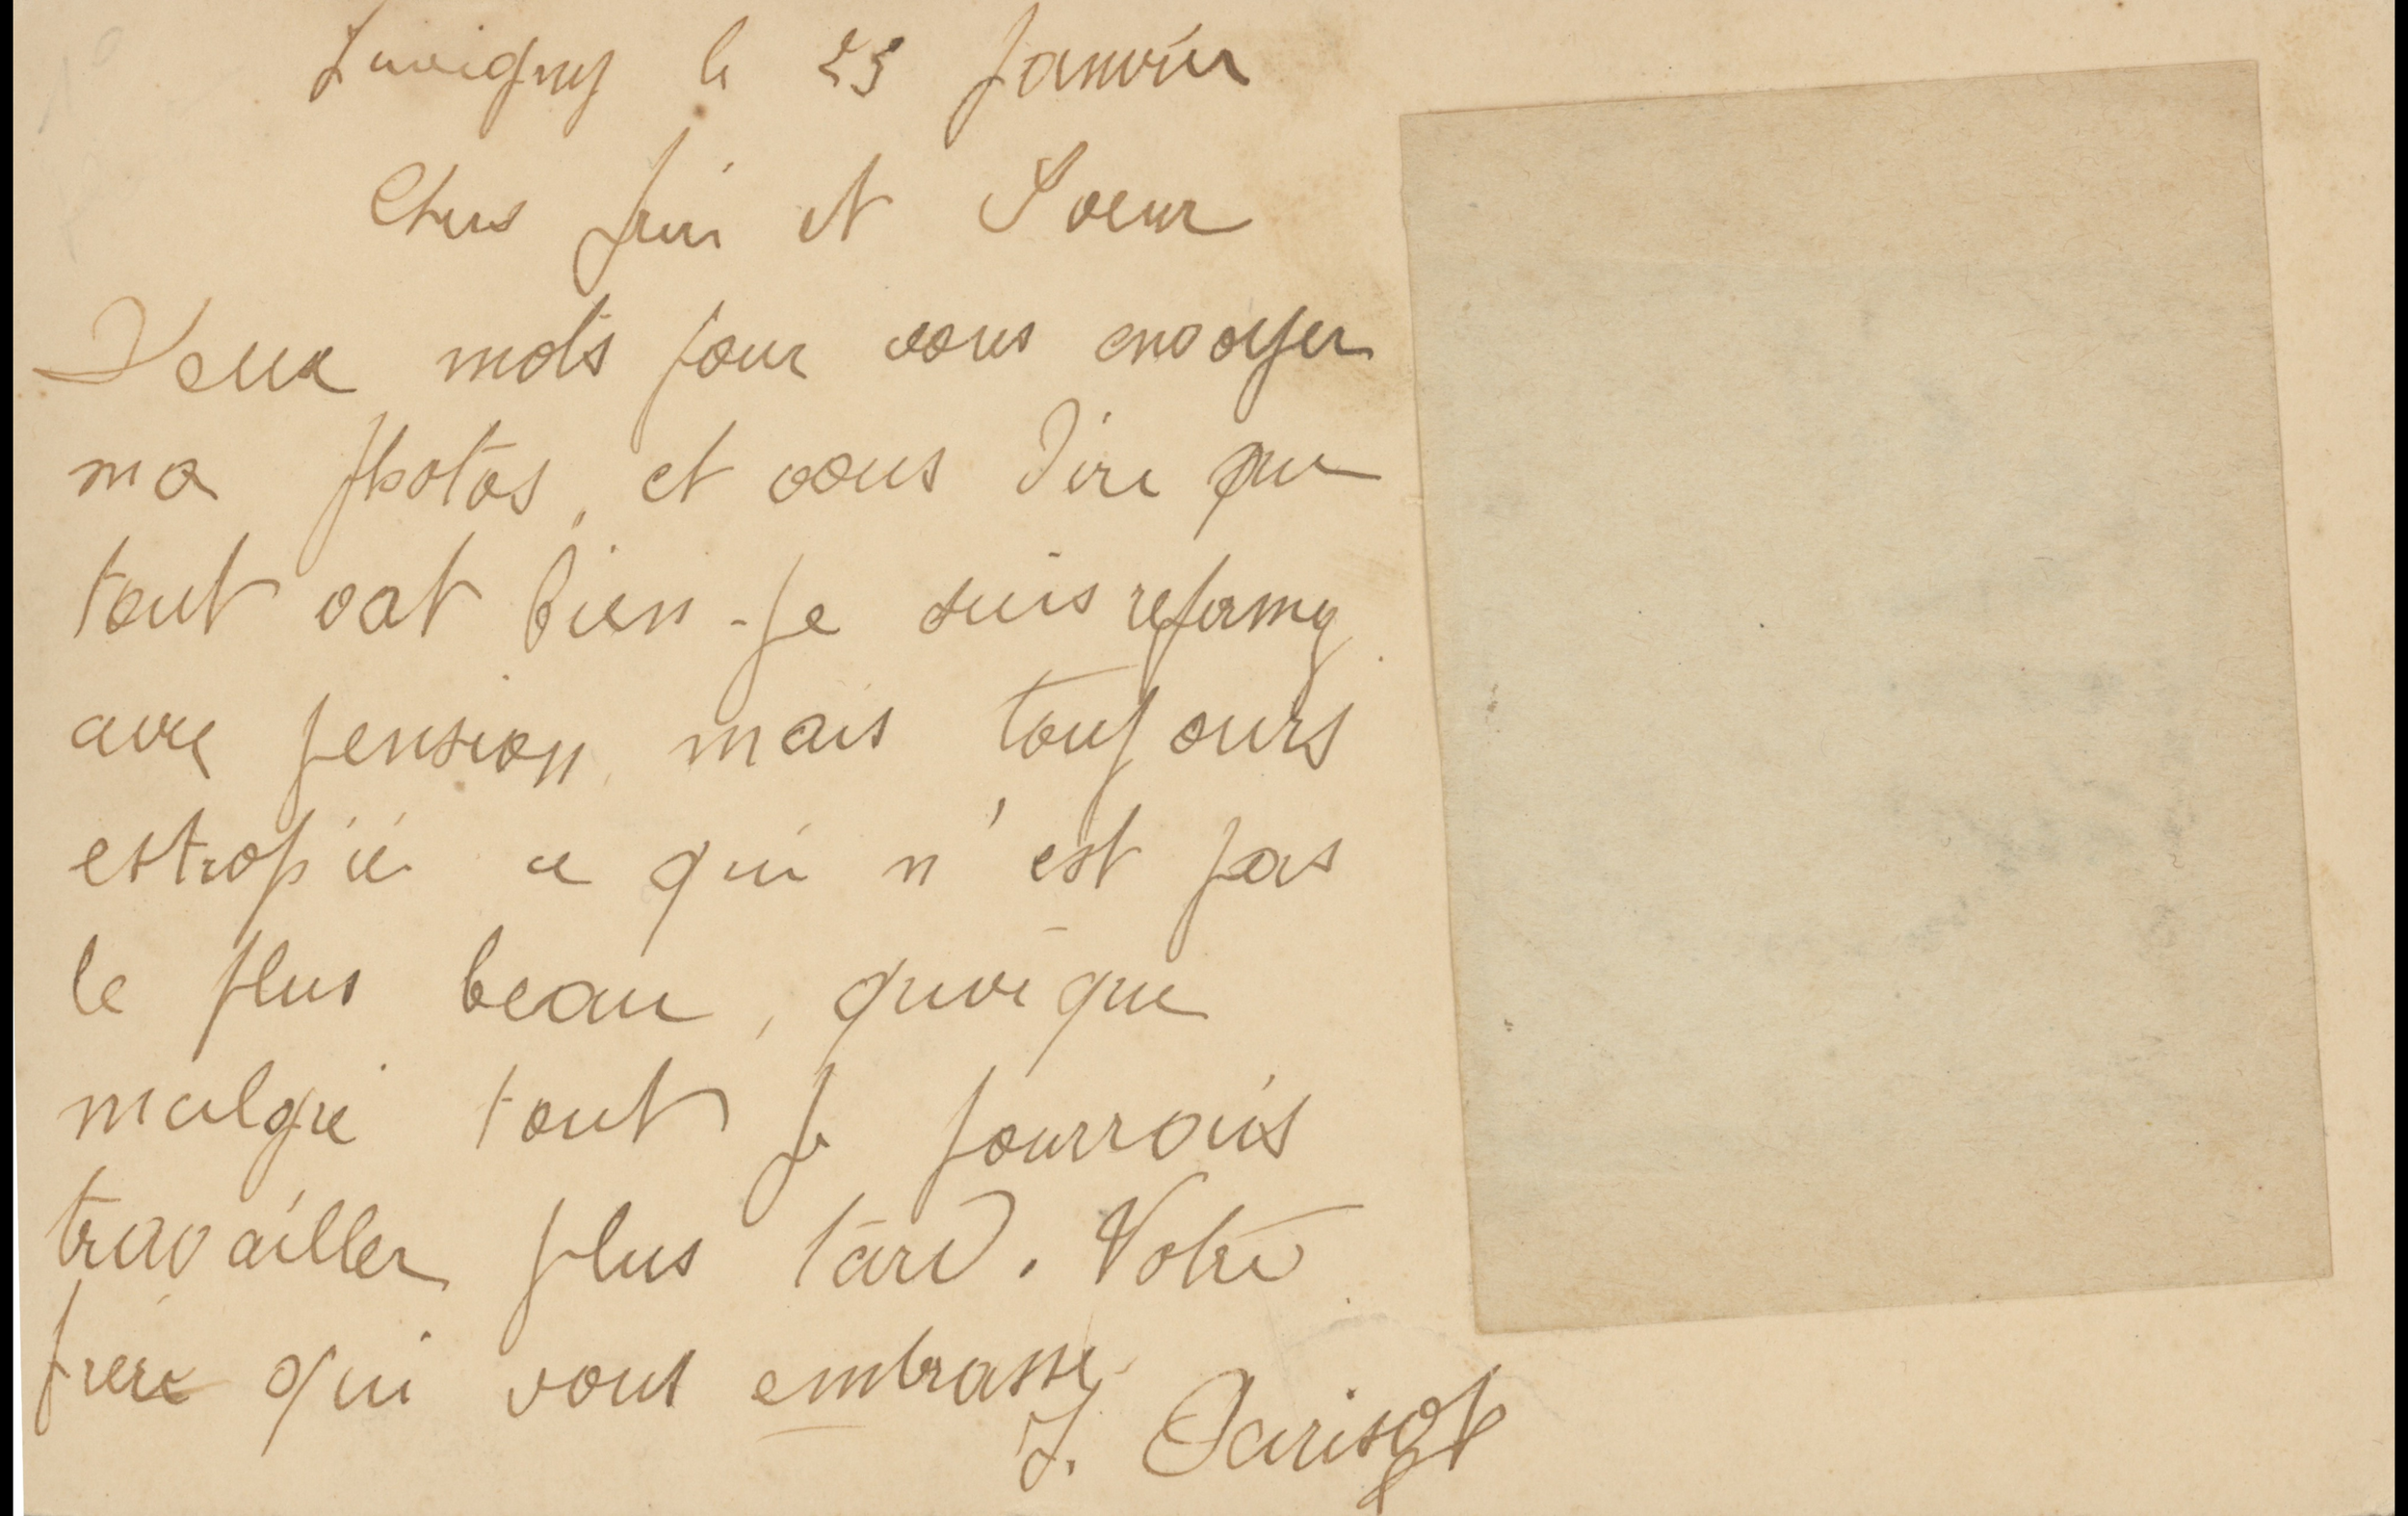 Juvigny le 25 Janvier
Chers frère et Soeur
Deux mots pour vous envoyer
ma photos, et vous dire que
tout vat bien - Je suis reformé
avec pension, mais toujours
estropié ce qui n'est pas
le plus beau, quoique
malgré tout je pourrais
travailler plus tard. Votre
frère qui vous embrasse
J. Parisot